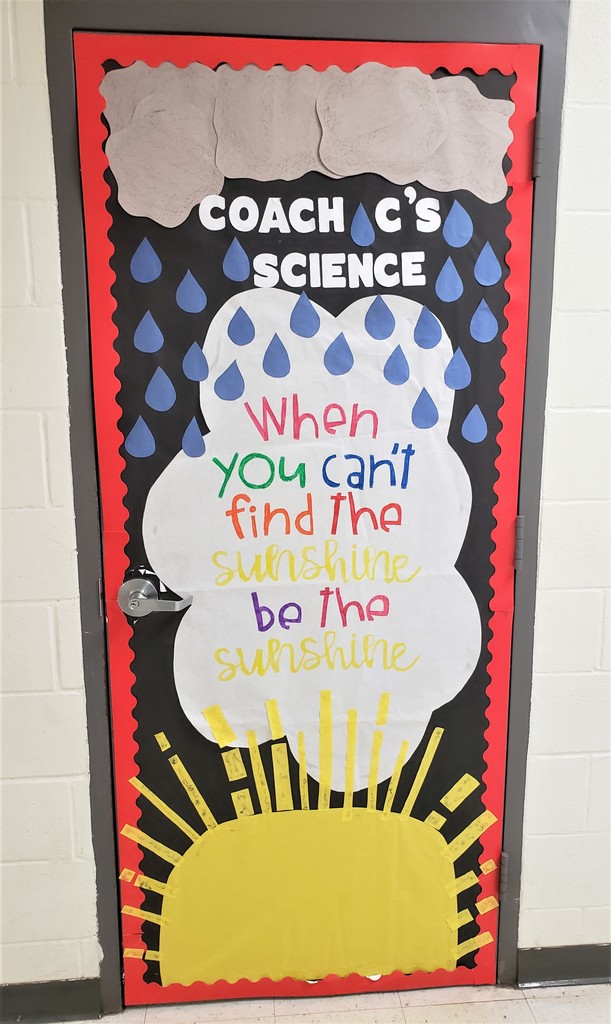 COACH C'S
SCIENCE
When
you can't
find the
sunshine
be the
sunshine